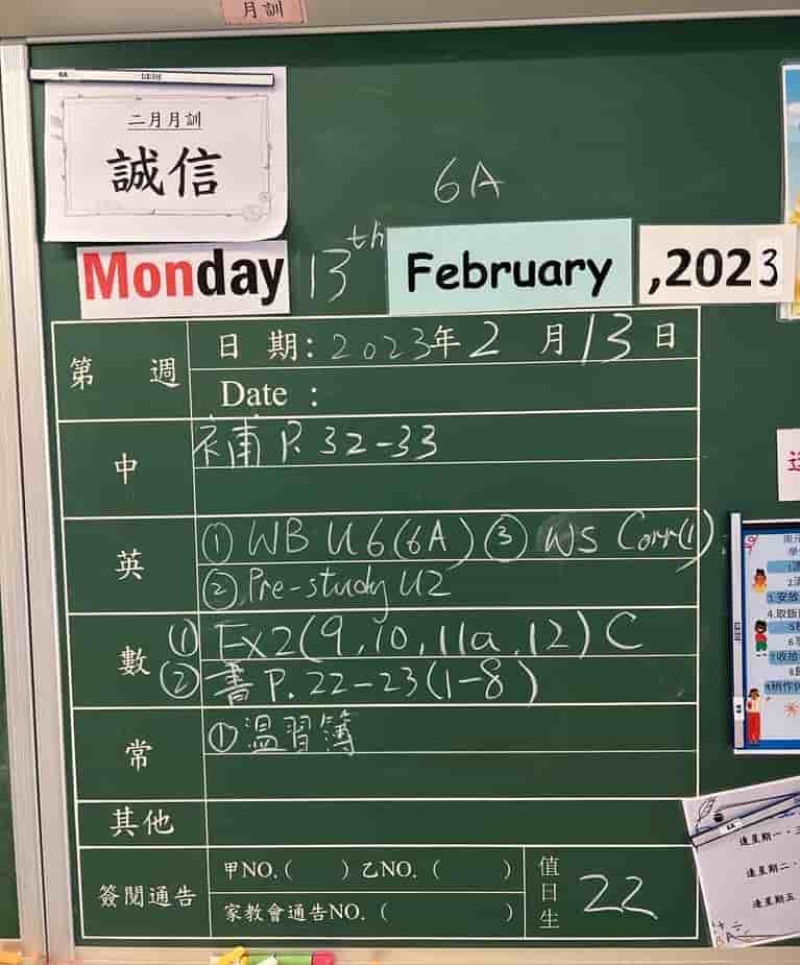 月訓
二月月訓
誠信
6A
Monday 13th February ,2023
第 週
日 期: 2023年2月13日
Date :
中
補 P. 32-33
英
① WB U6(6A) ③ WS Corr(1)
② Pre-study U2
數
① Ex2(9,10,11a,12) C
② 書 P. 22-23(1-8)
常
① 温習簿
其他
簽閱通告
甲NO.( ) 乙NO. ( )
家教會通告NO. ( )
值日生
22
逢星期一、三
逢星期二、
逢星期五